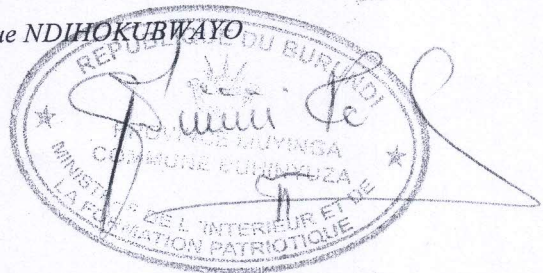 NDIHOKUBWAYO
REPUBLIQUE DU BURUNDI
PROVINCE MUYINGA
COMMUNE BUHINYUZA
MINISTERE DE L'INTERIEUR ET DE
LA FORMATION PATRIOTIQUE